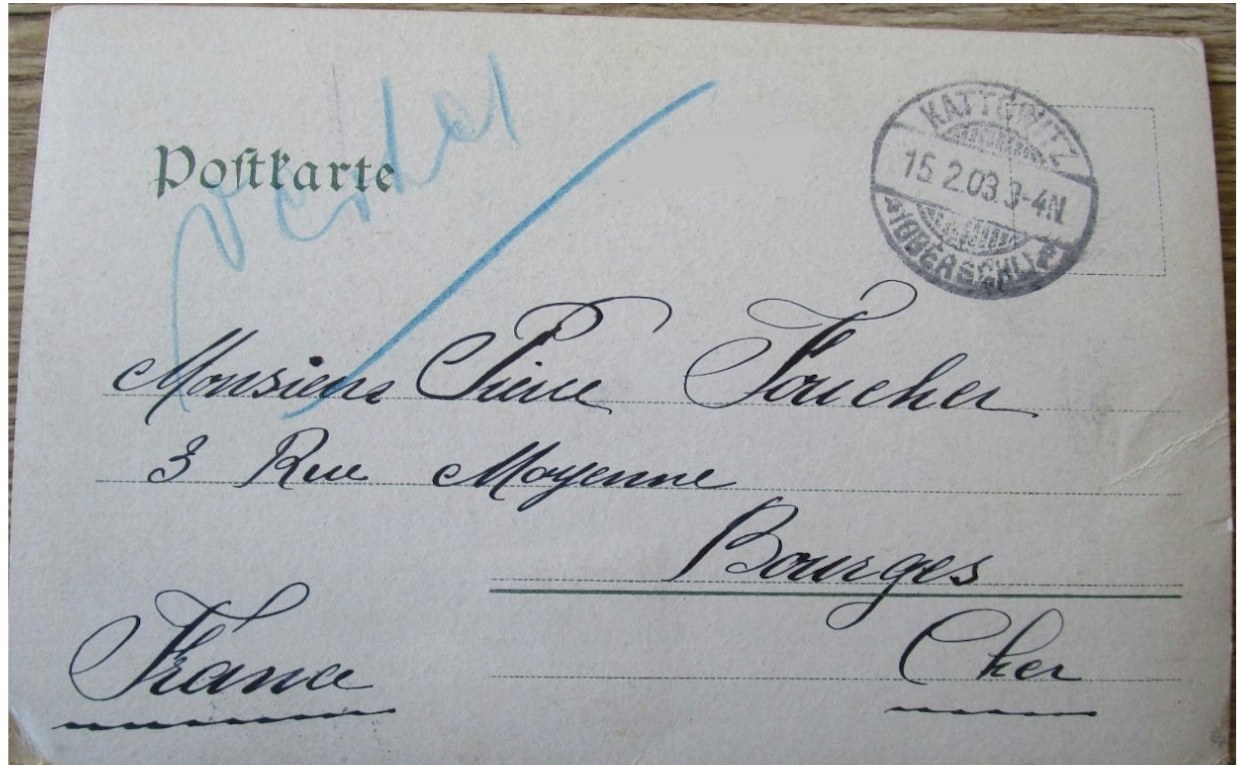 Postkarte
KATTOWITZ
15.2.03.3-4N.
*(OBERSCHL.)*
Monsieur Pierre Foucher
3 Rue Moyenne
Bourges
Cher
France